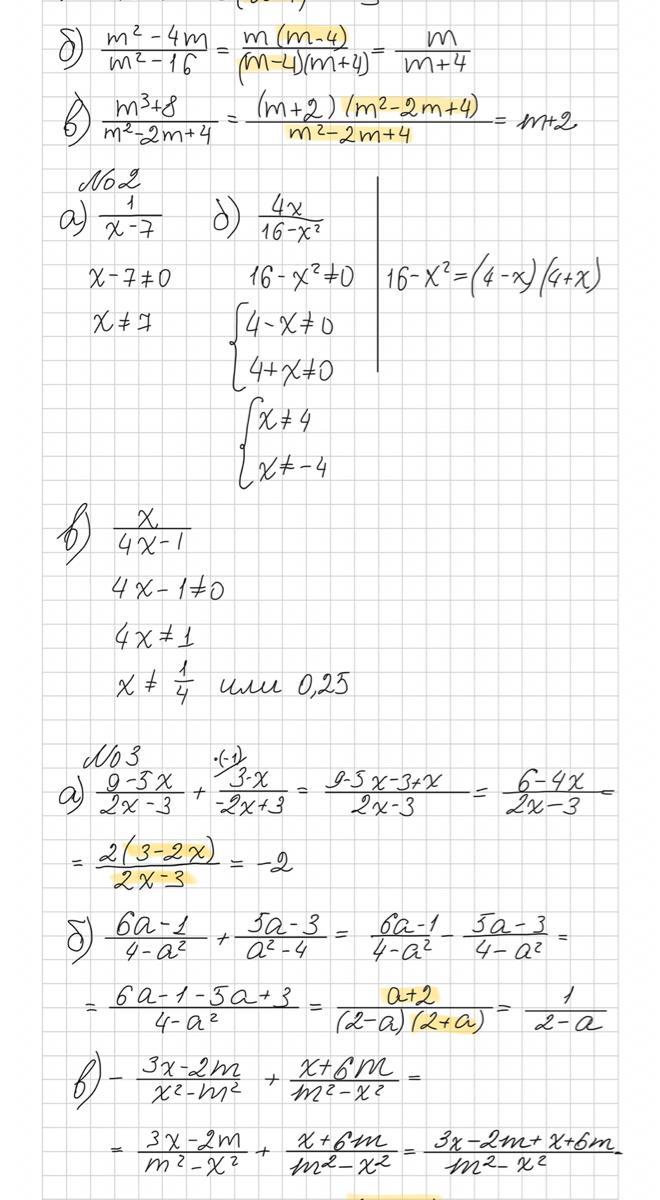 б) (m² - 4m)/(m² - 16) = (m(m-4))/((m-4)(m+4)) = m/(m+4)
в) (m³+8)/(m²-2m+4) = ((m+2)(m²-2m+4))/(m²-2m+4) = m+2
No2
а) 1/(x-7) б) 4x/(16-x²)
x-7≠0 16-x²≠0 16-x²=(4-x)(4+x)
x≠7 {4-x≠0
4+x≠0
{x≠4
x≠-4
в) x/(4x-1)
4x-1≠0
4x≠1
x≠1/4 или 0,25
No3
а) (9-5x)/(2x-3) + (3-x)/(-2x+3) ·(-1) = (9-5x-3+x)/(2x-3) = (6-4x)/(2x-3) =
= (2(3-2x))/(2x-3) = -2
б) (6a-1)/(4-a²) + (5a-3)/(a²-4) = (6a-1)/(4-a²) - (5a-3)/(4-a²) =
= (6a-1-5a+3)/(4-a²) = (a+2)/((2-a)(2+a)) = 1/(2-a)
в) - (3x-2m)/(x²-m²) + (x+6m)/(m²-x²) =
= (3x-2m)/(m²-x²) + (x+6m)/(m²-x²) = (3x-2m+x+6m)/(m²-x²)